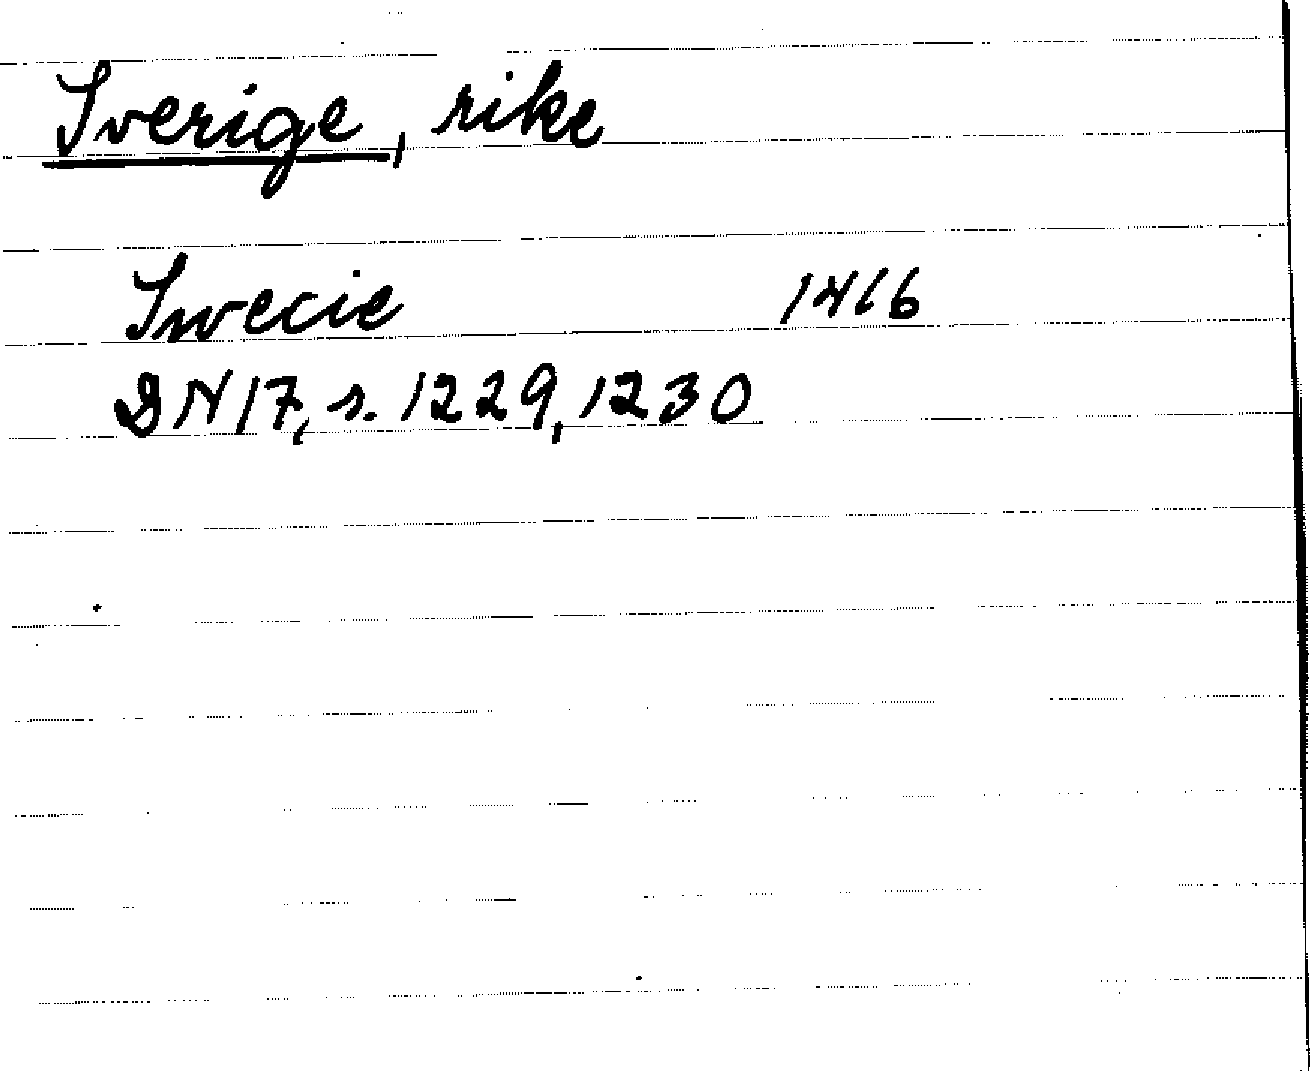 Sverige, rike
Swecie 1416
DN 17, s. 1229, 1230